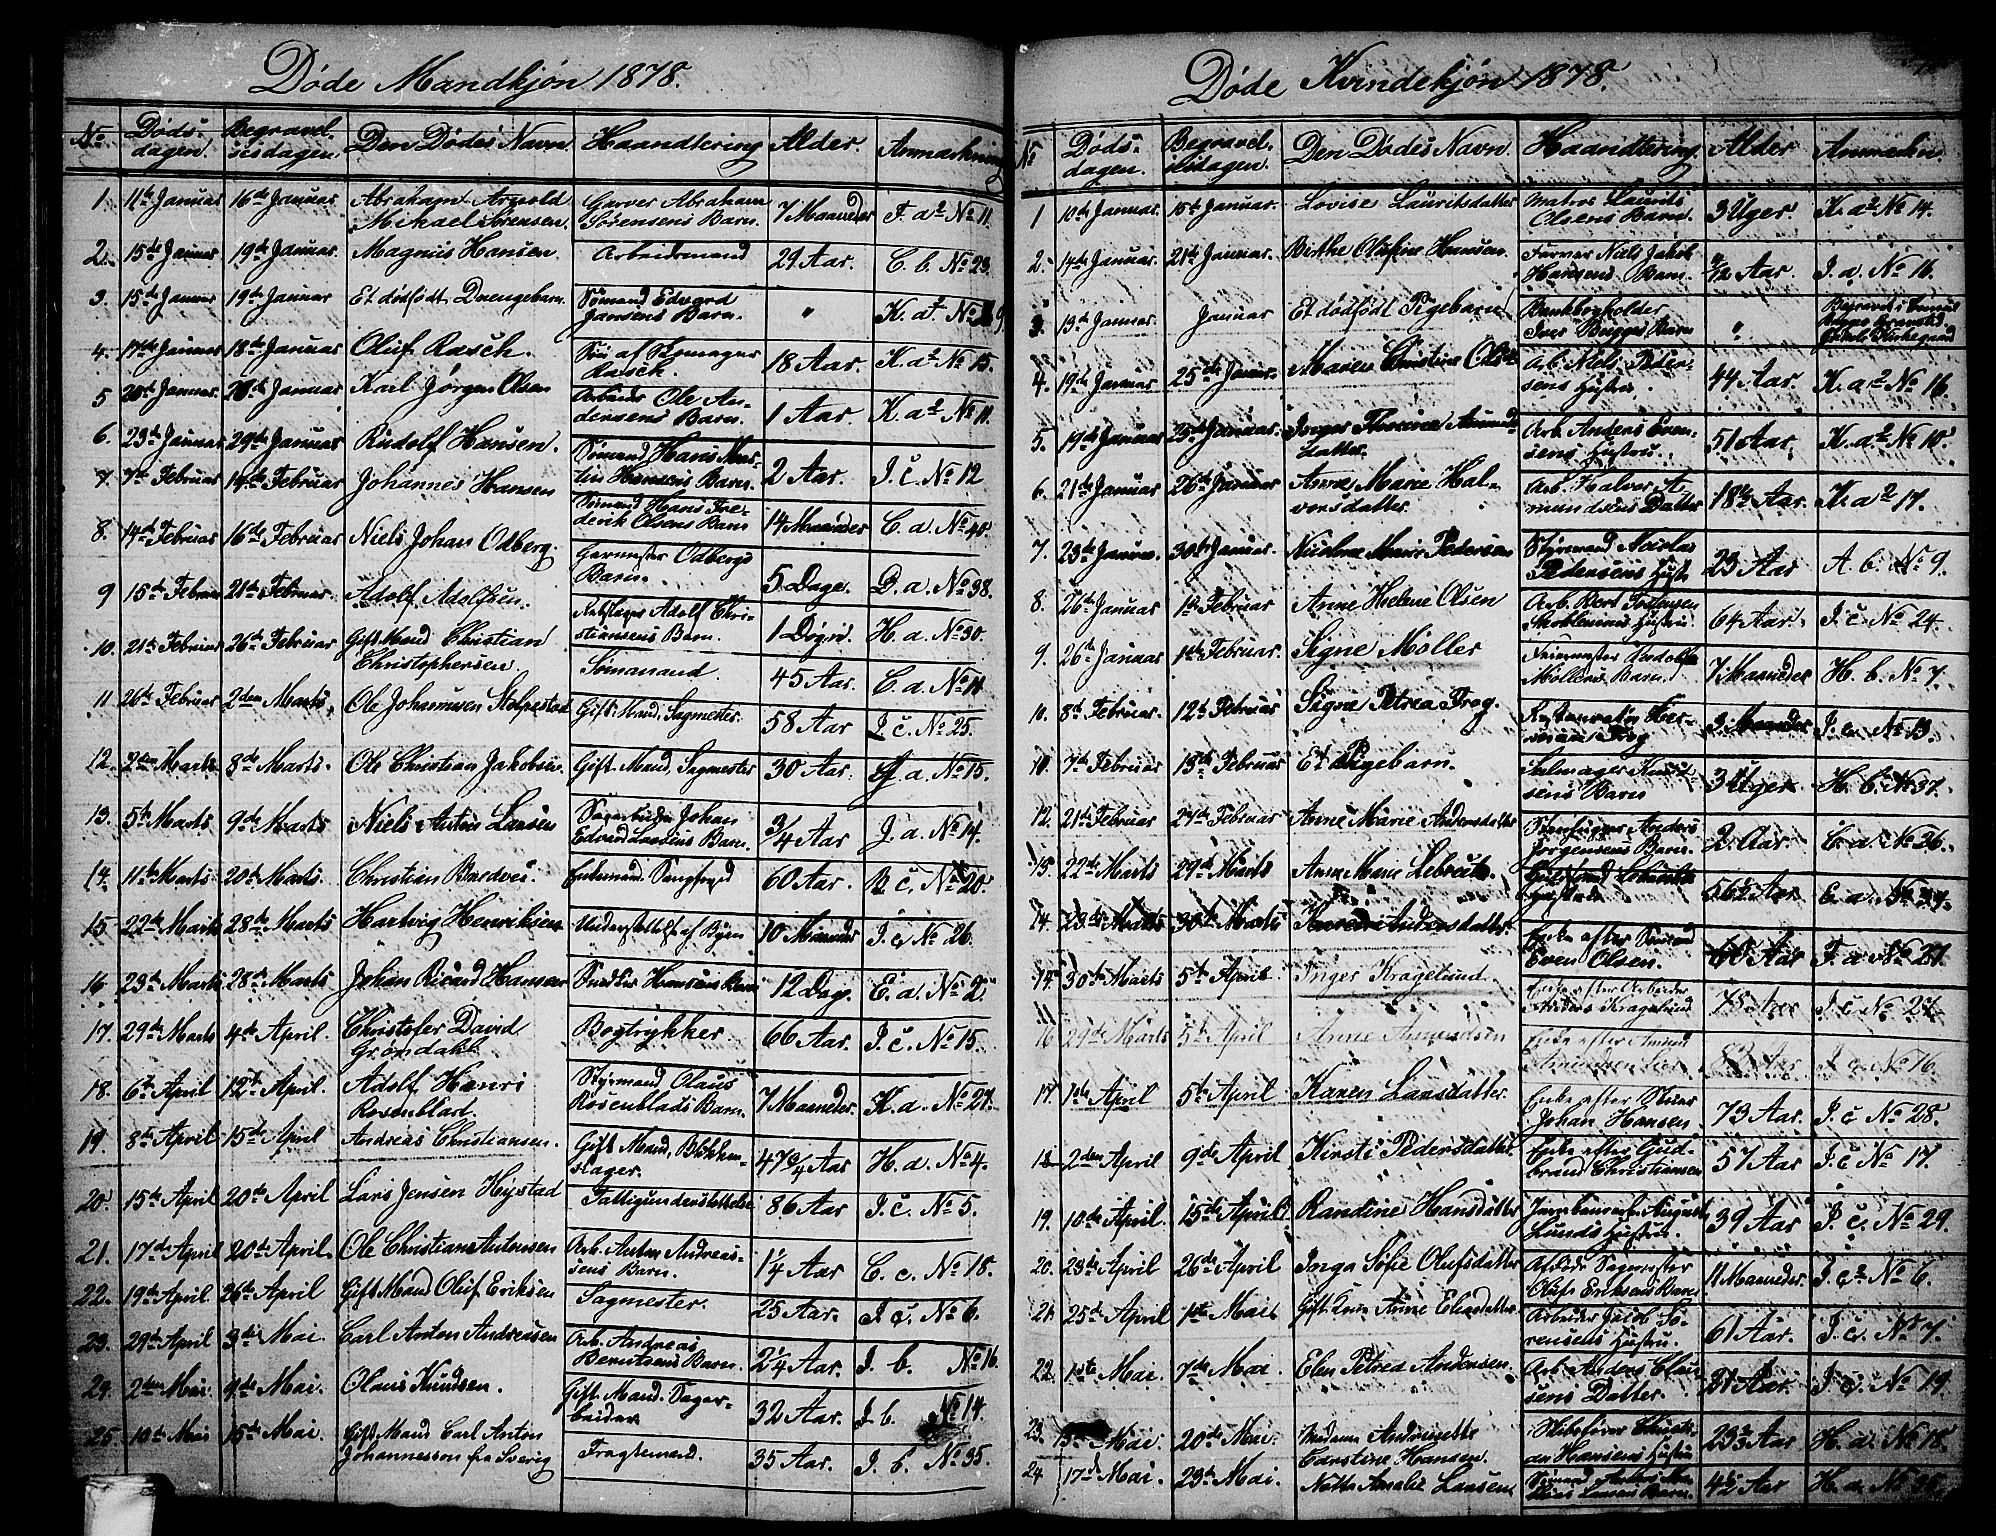 Døde Mandkjøn 1878.
No Døds-dagen. Begravel-sesdagen. Den Dødes Navn. Haandtering Alder. Anmærkning
1 11te Januar 16de Januar. Abrahavn Arnold Mikael Sørensen. Garver Abraham Sørensens Barn. 7 Maaneder F. a2 No 11.
2. 15de Januar 19de Januar. Magnus Hansen Arbeidsmand 29 Aar. C. b. No 23.
3. 15de Januar 19de Januar Et dødfødt Drengebarn. Sømand Edvard Jansens Barn. " K. a2. No 9
4. 17de Januar 18de Januar Oluf Rasch. Søn af Skomager Rasch. 18 Aar. K. a2 No 15.
5 20de Januar. 28de Januar Karl Jørgen Olsen Arbeider Ole An-dersens Barn. 1 Aar. K. a2 No 11.
6. 23de Januar 29de Januar Rudolf Hansen. Sømand Hans Mar-tin Hansens Barn. 2 Aar. I. c. No 12
7. 7de Februar 14de Februar Johannes Hansen Sømand Hans Fre-derik Olsens Barn 14 Maaneder C. a. No 48.
8. 14de Februar 16de Februar Niels Johan Odberg. Garmester Odbergs Barn. 5 Dage. D. a. No 38.
9 15de Februar 21de Februar Adolf Adolfsen. Adolf Chri-stiansens Barn. 1 Døgn. H. a. No 30.
10. 21de Februar 26de Februar Gift Mand Christian Christophersen. Sømanand. 45 Aar. C. a. No 11
11 26de Februar 2den Marts. Ole Johannesen Gift Mand, Sagmester. 58 Aar I. c. No 25.
12. 2den Marts 8de Marts. Ole Christian Jakobsen Gift Mand, Sagmester 30 Aar. a. No 15.
13. 5te Marts 9de Marts Niels Anton Larsen Johan Edvard Larsens Barn. 3/4 Aar J. a. No 14.
14. 11te Marts. 20de Marts. Christian Bredves. Enkemand. 60 Aar. B c. No 20.
15 22de Marts 28de Marts Hartvig Henriksen Understøttelse af Byen 10 Maaneder I. c. No 26.
16 23de Marts 28de Marts Johan Ricard Hansen Snedker Hansens Barn 12 Dage. E. a. No 2.
17. 29de Marts 4de April. Christofer David Grøndahl. Bogtrykker 66 Aar. I. c. No 15.
18. 6te April 12te April. Adolf Hanri Rosenblad. Styrmand Olaus Rosenblads Barn. 7 Maaneder. K. a. No 27.
19. 8de April 15de April Andreas Christiansen. Gift Mand, Blokkma-slager. 47 3/4 Aar H. a. No 4.
20. 15de April 20de April Lars Jensen Hystad Fattigunderstøttelse 86 Aar I. c. No 5.
21. 17de April 20de April. Ole Christian Antonsen Arb. Anton Andreas-sens Barn. 1 1/4 Aar C. c. No 15.
22. 19de April. 26de April Gift Mand Oluf Eriksen Sagmester. 25 Aar. I. c. No 6.
23. 29de April 3die Mai. Carl Anton Andreasen Arb. Andreas Berntsens Barn. 2 1/4 Aar. I. b. No 16.
24. 2den Mai. 9de Mai. Olaus Knudsen. Gift Mand. Sagar-beider. 32 Aar. I. b. No 14.
25. 10de Mai 15de Mai. Gift Mand Carl Anton Johannesson fra Sverig Fragtemand. 35 Aar. I. b. No 35.
Døde Kvindekjøn 1878.
No Døds-dagen. Begravel-sesdagen. Den Dødes Navn. Haandtering. Alder Anmerkn.
1 10de Januar. 15de Januar. Lovise Lauritsdatter Matros Laurits Olsens Barn. 3 Uger. K. a2 No 14.
2. 14de Januar. 21de Januar. Birthe Olufine Hansen. Niels Jakob Hansens Barn. /12 Aar. I. a. No 16.
3. 13de Januar. Januar Et dødfødt Pigebarn Iver Bugges Barn " Begravet
4. 19de Januar 25de Januar. Maren Christine Arb. Niels Peder-sens Hustru. 44 Aar. K. a2 No 16.
5. 19de Januar 25de Januar. Inger datter. Arb. Anders Even-sens Hustru. 51 Aar. K. a2 No 10.
6. 21de Januar 26de Januar Anne Marie Hal-vorsdatter. Arb. Halvor A-mundsens Datter 18 Aar. K. a2 17.
7. 23de Januar. 30te Januar. Marie Pedersen Styrmand Pedersens Hustr 23 Aar A. b. No 9.
8. 26de Januar 1ste Februar Anne Helene Olsen Arb. Bert Hustru 64 Aar. I. c. No 24.
9. 26de Januar 1ste Februar. Signe Møller Feiermester Møllers Barn. 7 Maaneder H. b. No 7.
10. 8de Februar. 12te Februar Signe Petrea Frog. Restauratør Her-man Frog 3 Maaneder I. c. No 13.
10. 7de Februar 13de Februar Et Pigebarn. Barn 3 Uger. H. b. No 37.
12. 21de Februar 27de Februar Anne Marie Andersdatter Anders Jørgensens Barn. 2 Aar. C. a. No 26.
13. 22de Marts 29de Marts Anne Marie 56 Aar E. a.
14. 23de Marts 30te Marts Andersdatter. Enke efter Sømand Even Olsen. 60 Aar F. a. No 27
14. 30te Marts 5te April Inger Kragelund. Enke efter Arbeider Anders Kragelund 75 Aar I. c No 27.
16 29de Marts 5te April Anne Amundsen Enke efter Amund 82 Aar No 16.
17. 1ste April 5te April Karen Larsdatter. Enke efter Johan Hansen. 73 Aar. I. c No 28.
18 2den April 9de April Kirsti Pedersdatter. Enke efter Gud-brand Christiansen 57 Aar I. c No 17.
19. 10de April. 15de April Randine Hansdatter August Lunds Hustru. 39 Aar I. c. No 29.
20. 23de April 26de April Inga Sofie Olufsdatter Afdøde Sagmester Oluf Eriksens Barn 11 Maaneder. I. c2 No 6.
21. 25de April 1ste Mai Gift Kone Anne Eliasdatter. Arbeider Jacob Sø-rensens Hustru. 61 Aar. I. c. No 7.
22. 1ste Mai 7de Mai Elen Petrea Andersen. Arb. Anders Claus-sens Datter. 21 Aar. I. c. No 19.
23. Mai. 20de Mai. Madame Andrinette Carstine Hansen. Hansens Hustru 23 Aar H. a. No 18.
24 17de Mai. 23de Mai. Amalie Larsen. Sømand Larsens Barn. 4 Aar H. a.